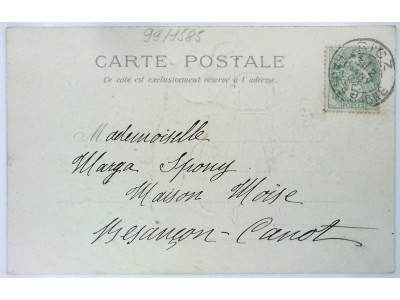 99/1585
CARTE POSTALE
Ce côté est exclusivement réservé à l'adresse.
Mademoiselle
Marga Spony
Maison Moïse
Besançon-Canot